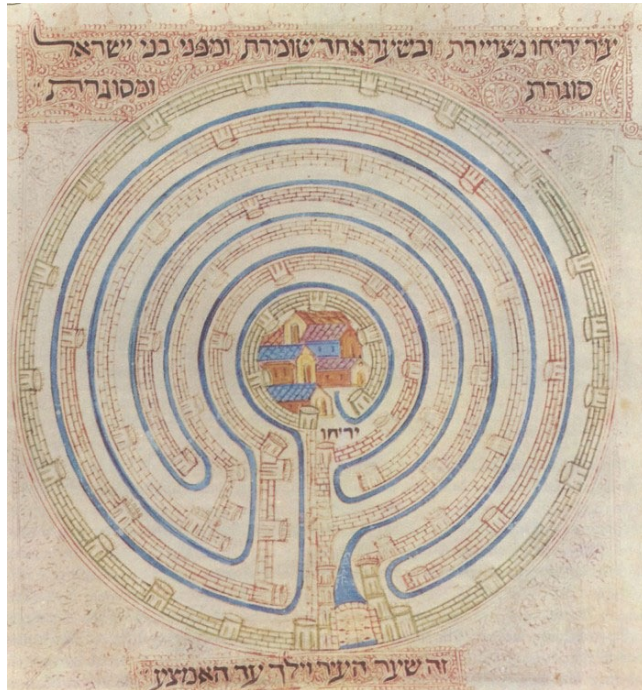 עיר יריחו מצויירת ובשער אחד שומירת ומפני בני ישראל
סוגרת ומסוגרת
יריחו
זה שער העיר וילך עד האמצע